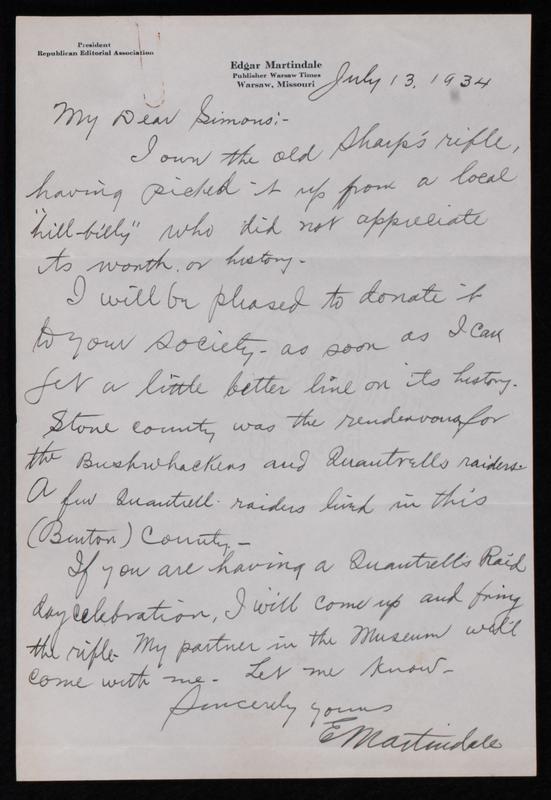 President
Republican Editorial Association
Edgar Martindale
Publisher Warsaw Times
Warsaw, Missouri
July 13, 1934
My Dear Simons:-
I own the old Sharp's rifle,
having picked it up from a local
"hill-billy" who did not appreciate
its worth or history-
I will be pleased to donate it
to your society- as soon as I can
get a little better line on its history-
Stone county was the rendezvous for
the Bushwhackers and Quantrells raiders-
A few Quantrell raiders lived in this
(Benton) County-
If you are having a Quantrell's Raid
day celebration, I will come up and bring
the rifle- My partner in the Museum will
come with me- Let me know-
Sincerely yours
E Martindale